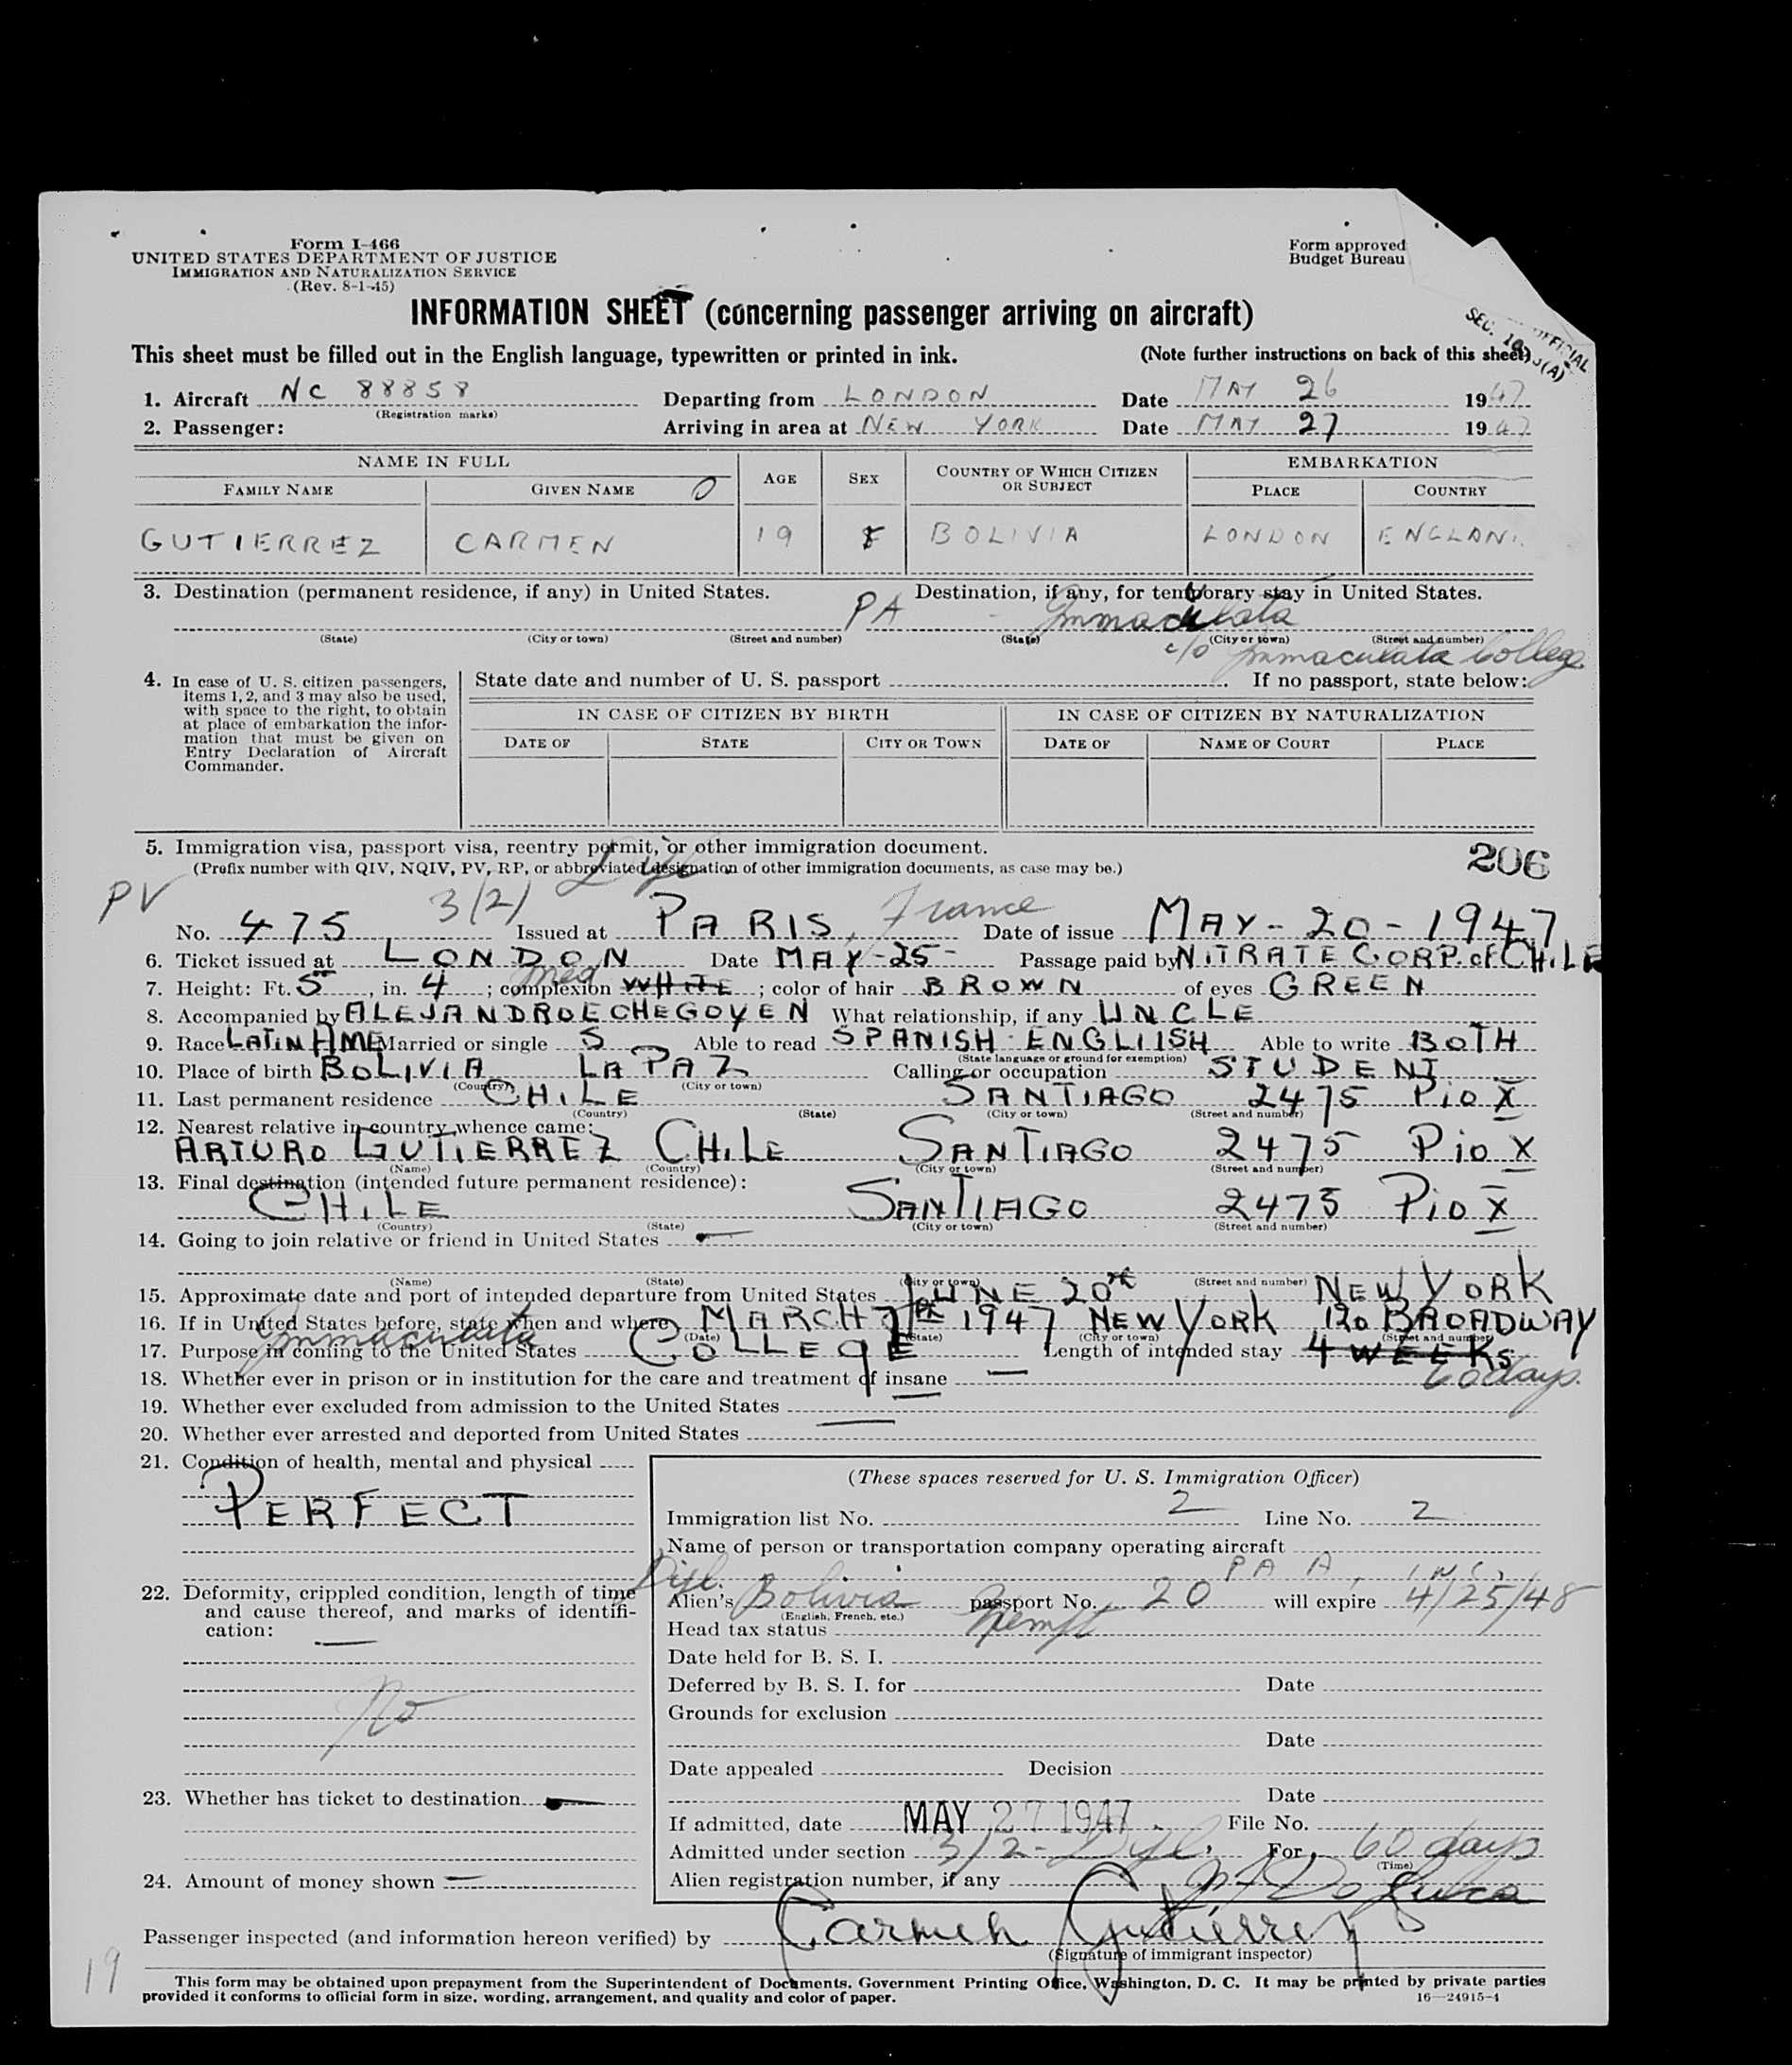 Form I-466
UNITED STATES DEPARTMENT OF JUSTICE
IMMIGRATION AND NATURALIZATION SERVICE
(Rev. 8-1-45)
Form approved
Budget Bureau
SEC. OFFICIAL
INFORMATION SHEET (concerning passenger arriving on aircraft)
This sheet must be filled out in the English language, typewritten or printed in ink. (Note further instructions on back of this sheet)
1. Aircraft NC 88858 Departing from LONDON Date MAY 26 1947
(Registration marks)
2. Passenger: Arriving in area at NEW YORK Date MAY 27 1947
NAME IN FULL AGE SEX COUNTRY OF WHICH CITIZEN OR SUBJECT EMBARKATION
FAMILY NAME GIVEN NAME PLACE COUNTRY
GUTIERREZ CARMEN 19 F BOLIVIA LONDON ENGLAN
3. Destination (permanent residence, if any) in United States. Destination, if any, for temporary stay in United States.
PA Immaculata
(State) (City or town) (Street and number) (State) (City or town) (Street and number)
c/o Immaculata College
4. In case of U. S. citizen passengers, items 1, 2, and 3 may also be used, with space to the right, to obtain at place of embarkation the information that must be given on Entry Declaration of Aircraft Commander.
State date and number of U. S. passport If no passport, state below:
IN CASE OF CITIZEN BY BIRTH IN CASE OF CITIZEN BY NATURALIZATION
DATE OF STATE CITY OR TOWN DATE OF NAME OF COURT PLACE
5. Immigration visa, passport visa, reentry permit, or other immigration document.
206
(Prefix number with QIV, NQIV, PV, RP, or abbreviated designation of other immigration documents, as case may be.)
PV 3(2)
No. 475 Issued at PARIS, France Date of issue MAY-20-1947
6. Ticket issued at LONDON Date MAY-25- Passage paid by NITRATE CORP. of CHILE
7. Height: Ft. 5, in. 4; complexion WHITE med; color of hair BROWN of eyes GREEN
8. Accompanied by ALEJANDRO ECHEGOYEN What relationship, if any UNCLE
9. Race LATIN AME Married or single S Able to read SPANISH ENGLIISH Able to write BOTH
(State language or ground for exemption)
10. Place of birth BOLIVIA LA PAZ Calling or occupation STUDENT
(Country) (City or town)
11. Last permanent residence CHILE SANTIAGO 2475 Pio X
(Country) (State) (City or town) (Street and number)
12. Nearest relative in country whence came:
ARTURO GUTIERREZ CHILE SANTIAGO 2475 Pio X
(Name) (Country) (City or town) (Street and number)
13. Final destination (intended future permanent residence):
CHILE SANTIAGO 2475 Pio X
(Country) (State) (City or town) (Street and number)
14. Going to join relative or friend in United States —
(Name) (State) (City or town) (Street and number)
15. Approximate date and port of intended departure from United States JUNE 20th NEW YORK
16. If in United States before, state when and where MARCH 1947 NEW YORK 120 BROADWAY
(Date) (State) (City or town) (Street and number)
Immaculata
17. Purpose in coming to the United States COLLEGE Length of intended stay 4 WEEKS
60 days.
18. Whether ever in prison or in institution for the care and treatment of insane —
19. Whether ever excluded from admission to the United States —
20. Whether ever arrested and deported from United States —
21. Condition of health, mental and physical
PERFECT
(These spaces reserved for U. S. Immigration Officer)
Immigration list No. 2 Line No. 2
Name of person or transportation company operating aircraft
PAA, INC.
22. Deformity, crippled condition, length of time and cause thereof, and marks of identification: —
No
Alien's Bolivia passport No. 20 will expire 4/25/48
(English, French, etc.)
Head tax status Exempt
Date held for B. S. I.
Deferred by B. S. I. for Date
Grounds for exclusion
Date
Date appealed Decision
23. Whether has ticket to destination —
Date
If admitted, date MAY 27 1947 File No.
Admitted under section 3/2- For 60 days
(Time)
24. Amount of money shown —
Alien registration number, if any
Passenger inspected (and information hereon verified) by Carmen Gutierrez
(Signature of immigrant inspector)
19
This form may be obtained upon prepayment from the Superintendent of Documents, Government Printing Office, Washington, D. C. It may be printed by private parties
provided it conforms to official form in size, wording, arrangement, and quality and color of paper. 16—24915-1